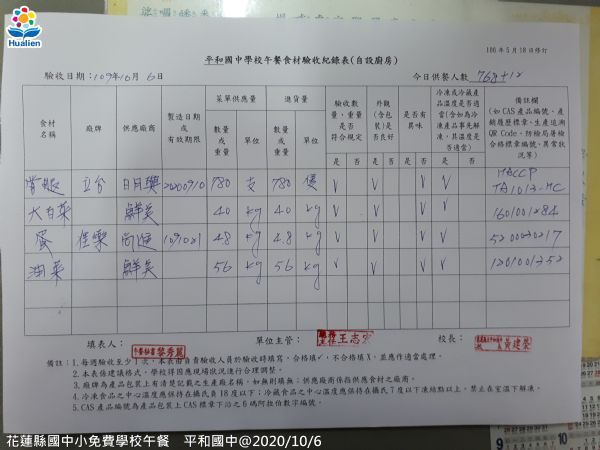 Hualien
106年5月18日修訂
平和國中學校午餐食材驗收紀錄表(自設廚房)
驗收日期：109年10月6日 今日供餐人數 768+12
食材名稱 廠牌 供應廠商 製造日期或有效期限 菜單供應量 進貨量 驗收數量，重量是否符合規定 外觀(含包裝)是否良好 是否有異味 冷凍或冷藏產品溫度是否適當(含如為冷凍產品事先解凍，其溫度是否適當) 備註欄(如CAS產品編號、產銷履歷標章、生產追溯QR Code、防檢局署檢合格標章編號、異常狀況等)
數量或重量 單位 數量或重量 單位 是 否 是 否 是 否 是 否
立台 20200910 780 支 780 V V V V HACCP
TA1013-MC
大白菜 鮮美 40 kg 40 kg V V V 1601001284
蛋 佳樂 1091021 48 kg 48 kg V V V
油菜 鮮美 56 kg 56 kg V V V 1201001352
填表人： 午餐秘書 黎秀鳳 單位主管： 總務主任 王志宏 校長： 黃建榮
備註：1.每週驗收至少1次，本表由自責驗收人員於驗收時填寫，合格填✓，不合格填X，並應作適當處理。
2.本表係建議格式，學校得因應現場狀況進行合理調整。
3.廠牌為產品包裝上有清楚記載之生產廠名稱，如無則填無；供應廠商係指供應食材之廠商。
4.冷凍食品之中心溫度應保持在攝氏負18度以下；冷藏食品之中心溫度應保持在攝氏7度以下凍結點以上，禁止在室溫下解凍。
5.CAS產品編號為產品包裝上CAS標章下沿之6碼阿拉伯數字編號。
花蓮縣國中小免費學校午餐 平和國中@2020/10/6